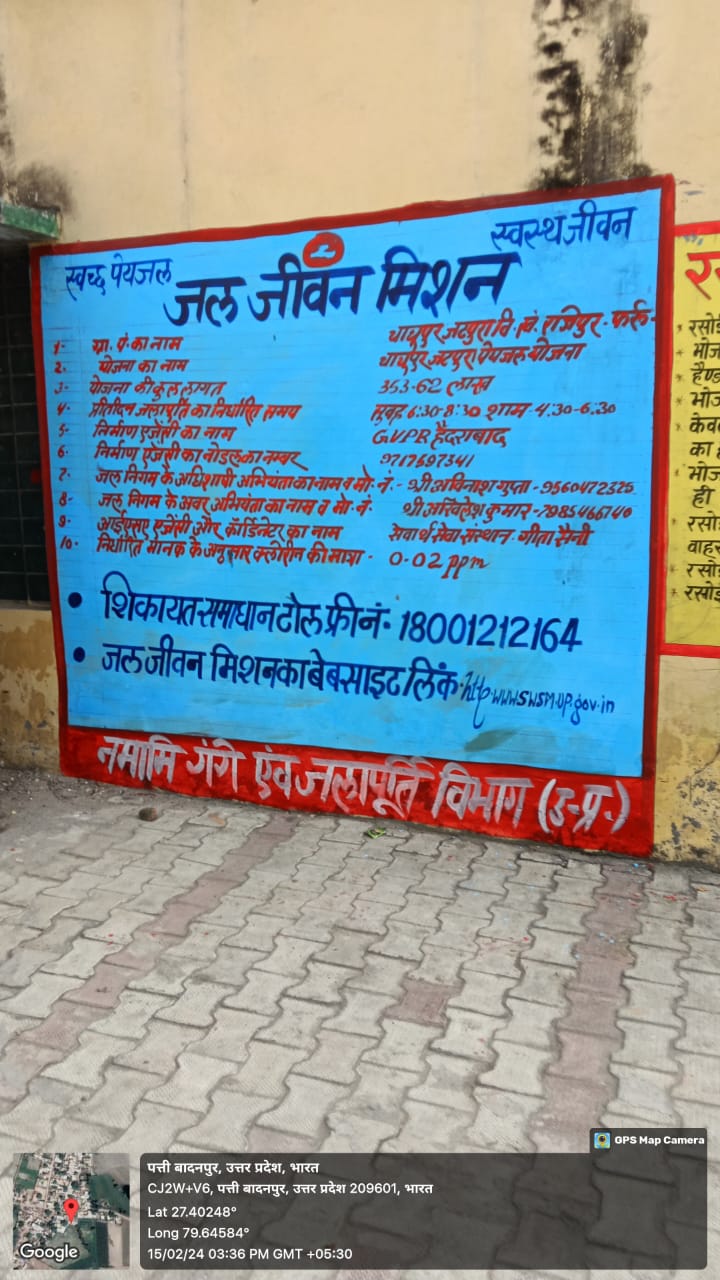 स्वच्छ पेयजल
स्वस्थ जीवन
जल जीवन मिशन
1- ग्रा. पं. का नाम जटपुरा वि. खं. राजेपुर - फर्रु-
2- योजना का नाम जटपुरा पेयजल योजना
3- योजना की कुल लागत 353-62 लाख
4- प्रतिदिन जलापूर्ति का निर्धारित समय सुबह 6:30-8:30 शाम-4:30-6:30
5- निर्माण एजेंसी का नाम GVPR हैदराबाद
6- निर्माण एजेंसी का नोडल का नम्बर 9717697341
7- जल निगम के अधिशाषी अभियंता का नाम व मो. नं. - श्री अविनाश गुप्ता - 9560472325
8- जल निगम के अवर अभियंता का नाम व मो. नं. श्री अखिलेश कुमार - 7985466140
9- आईएसए एजेंसी और कॉर्डिनेटर का नाम सेवार्थ सेवा सस्थान - गीता सैनी
10- निर्धारित मानक के अनुसार क्लोरीन की मात्रा - 0-02 ppm
• शिकायत समाधान टोल फ्री नं- 18001212164
• जल जीवन मिशन का बेबसाइट लिंक- http-www.swsm.up.gov.in
नमामि गंगे एंव जलापूर्ति विभाग (उ-प्र-)
रसोई
हैण्ड
केव
का
ही
रसो
वाह
रसो
रसोई
GPS Map Camera
पत्ती बादनपुर, उत्तर प्रदेश, भारत
CJ2W+V6, पत्ती बादनपुर, उत्तर प्रदेश 209601, भारत
Lat 27.40248°
Long 79.64584°
15/02/24 03:36 PM GMT +05:30
Google